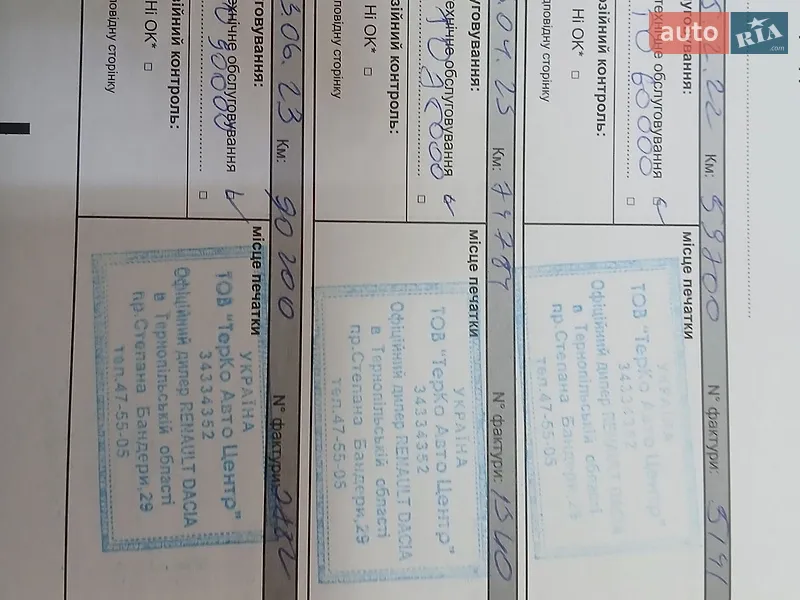 .22 Км: 59700 N° фактури: 5191
уговування:
технічне обслуговування
ТО 60000
зійний контроль:
Ні ОК*
повідну сторінку
місце печатки
УКРАЇНА
ТОВ "ТерКо Авто Центр"
34334352
Офіційний дилер RENAULT DACIA
в Тернопільській області
пр.Степана Бандери,29
тел.47-55-05
.04.23 Км: N° фактури: 1340
уговування:
технічне обслуговування
зійний контроль:
Ні ОК*
повідну сторінку
місце печатки
УКРАЇНА
ТОВ "ТерКо Авто Центр"
34334352
Офіційний дилер RENAULT DACIA
в Тернопільській області
пр.Степана Бандери,29
тел.47-55-05
3.06.23 Км: 90200 N° фактури:
говування:
хнічне обслуговування
ТО 90000
ійний контроль:
Ні ОК*
повідну сторінку
місце печатки
УКРАЇНА
ТОВ "ТерКо Авто Центр"
34334352
Офіційний дилер RENAULT DACIA
в Тернопільській області
пр.Степана Бандери,29
тел.47-55-05
auto RIA .com